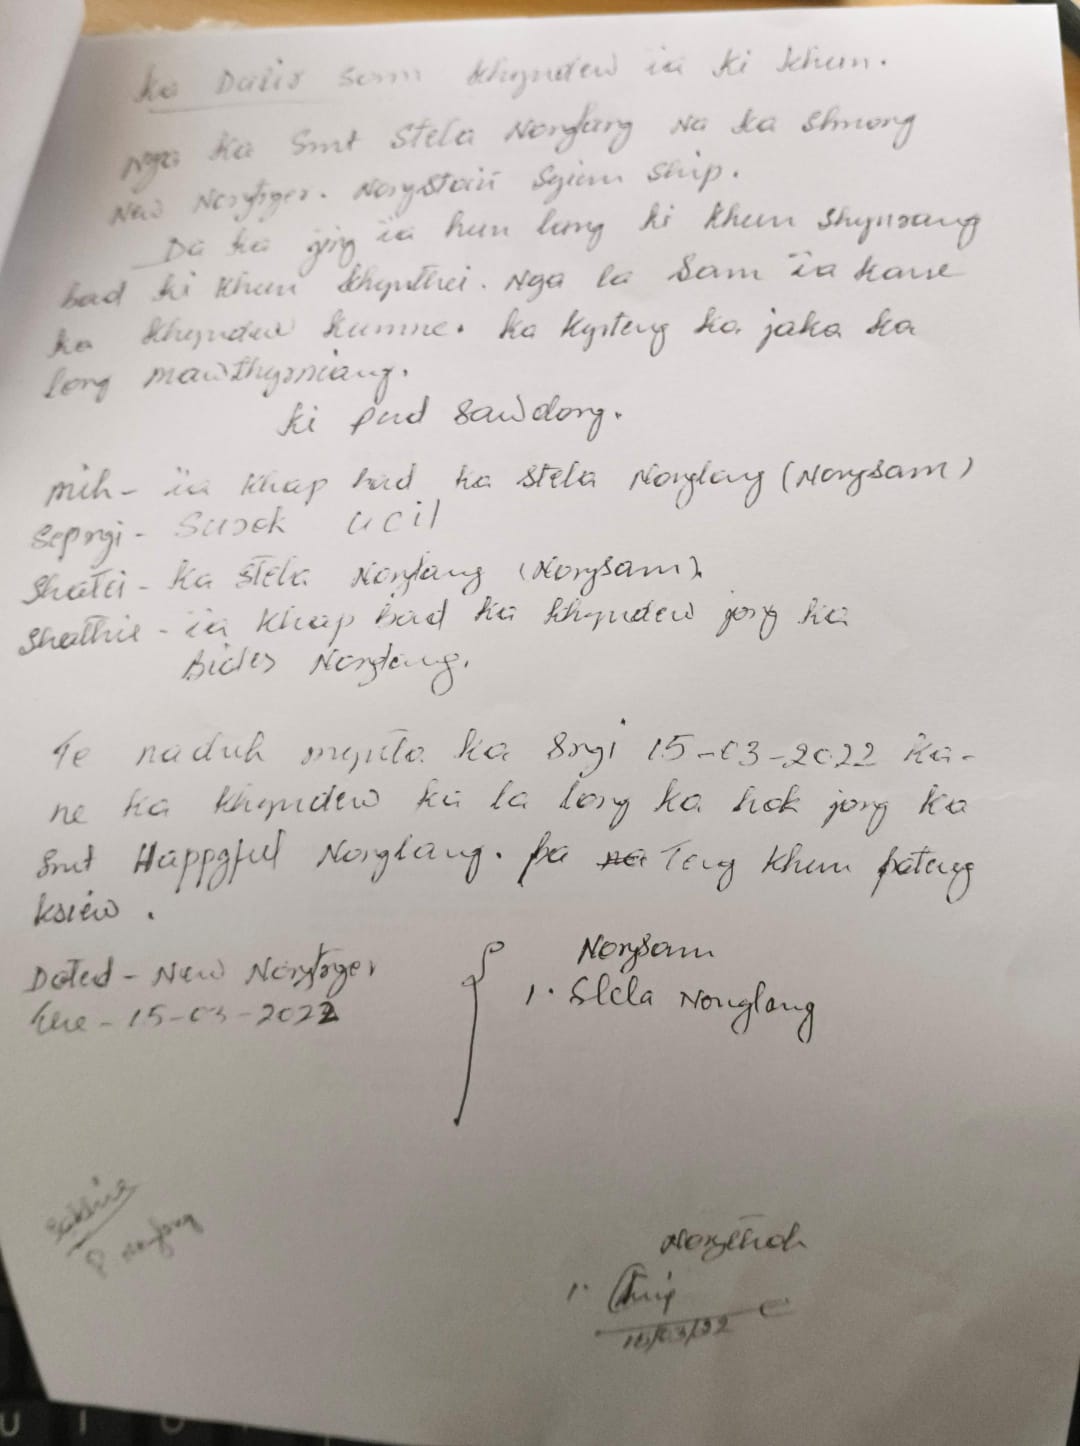 ka Dalis sam khyndew ia ki khun.
Nga ka Smt Stela Nonglang Na ka shnong
New Nongtyger. Nongstoin Syiem ship.
Da ka jing ia hun lang ki khun shynrang
bad ki khun khynthei. Nga la Sam ia kane
ka khyndew kumne. ka kyrteng ka jaka ka
long mawthyrniang.
ki pud sawdong.
mih - ia khap bad ka Stela Nonglang (Nongsam)
Sepngi - Surok ucil
Shatei - ka Stela Nonglang (Nongsam).
Shathie - ia khap bad ka khyndew jong ka
Nonglang.
Te naduh mynta ka Sngi 15-03-2022 ka-
ne ka khyndew ka la long ka hok jong ka
Smt Nonglang. ba Teng khun pateng
ksiew.
Dated - New Nongtyger
15-03-2022
Nongsam
1. Stela Nonglang
Sakhie
P Nonglang
Nongthoh
1.
15/03/22
U I O